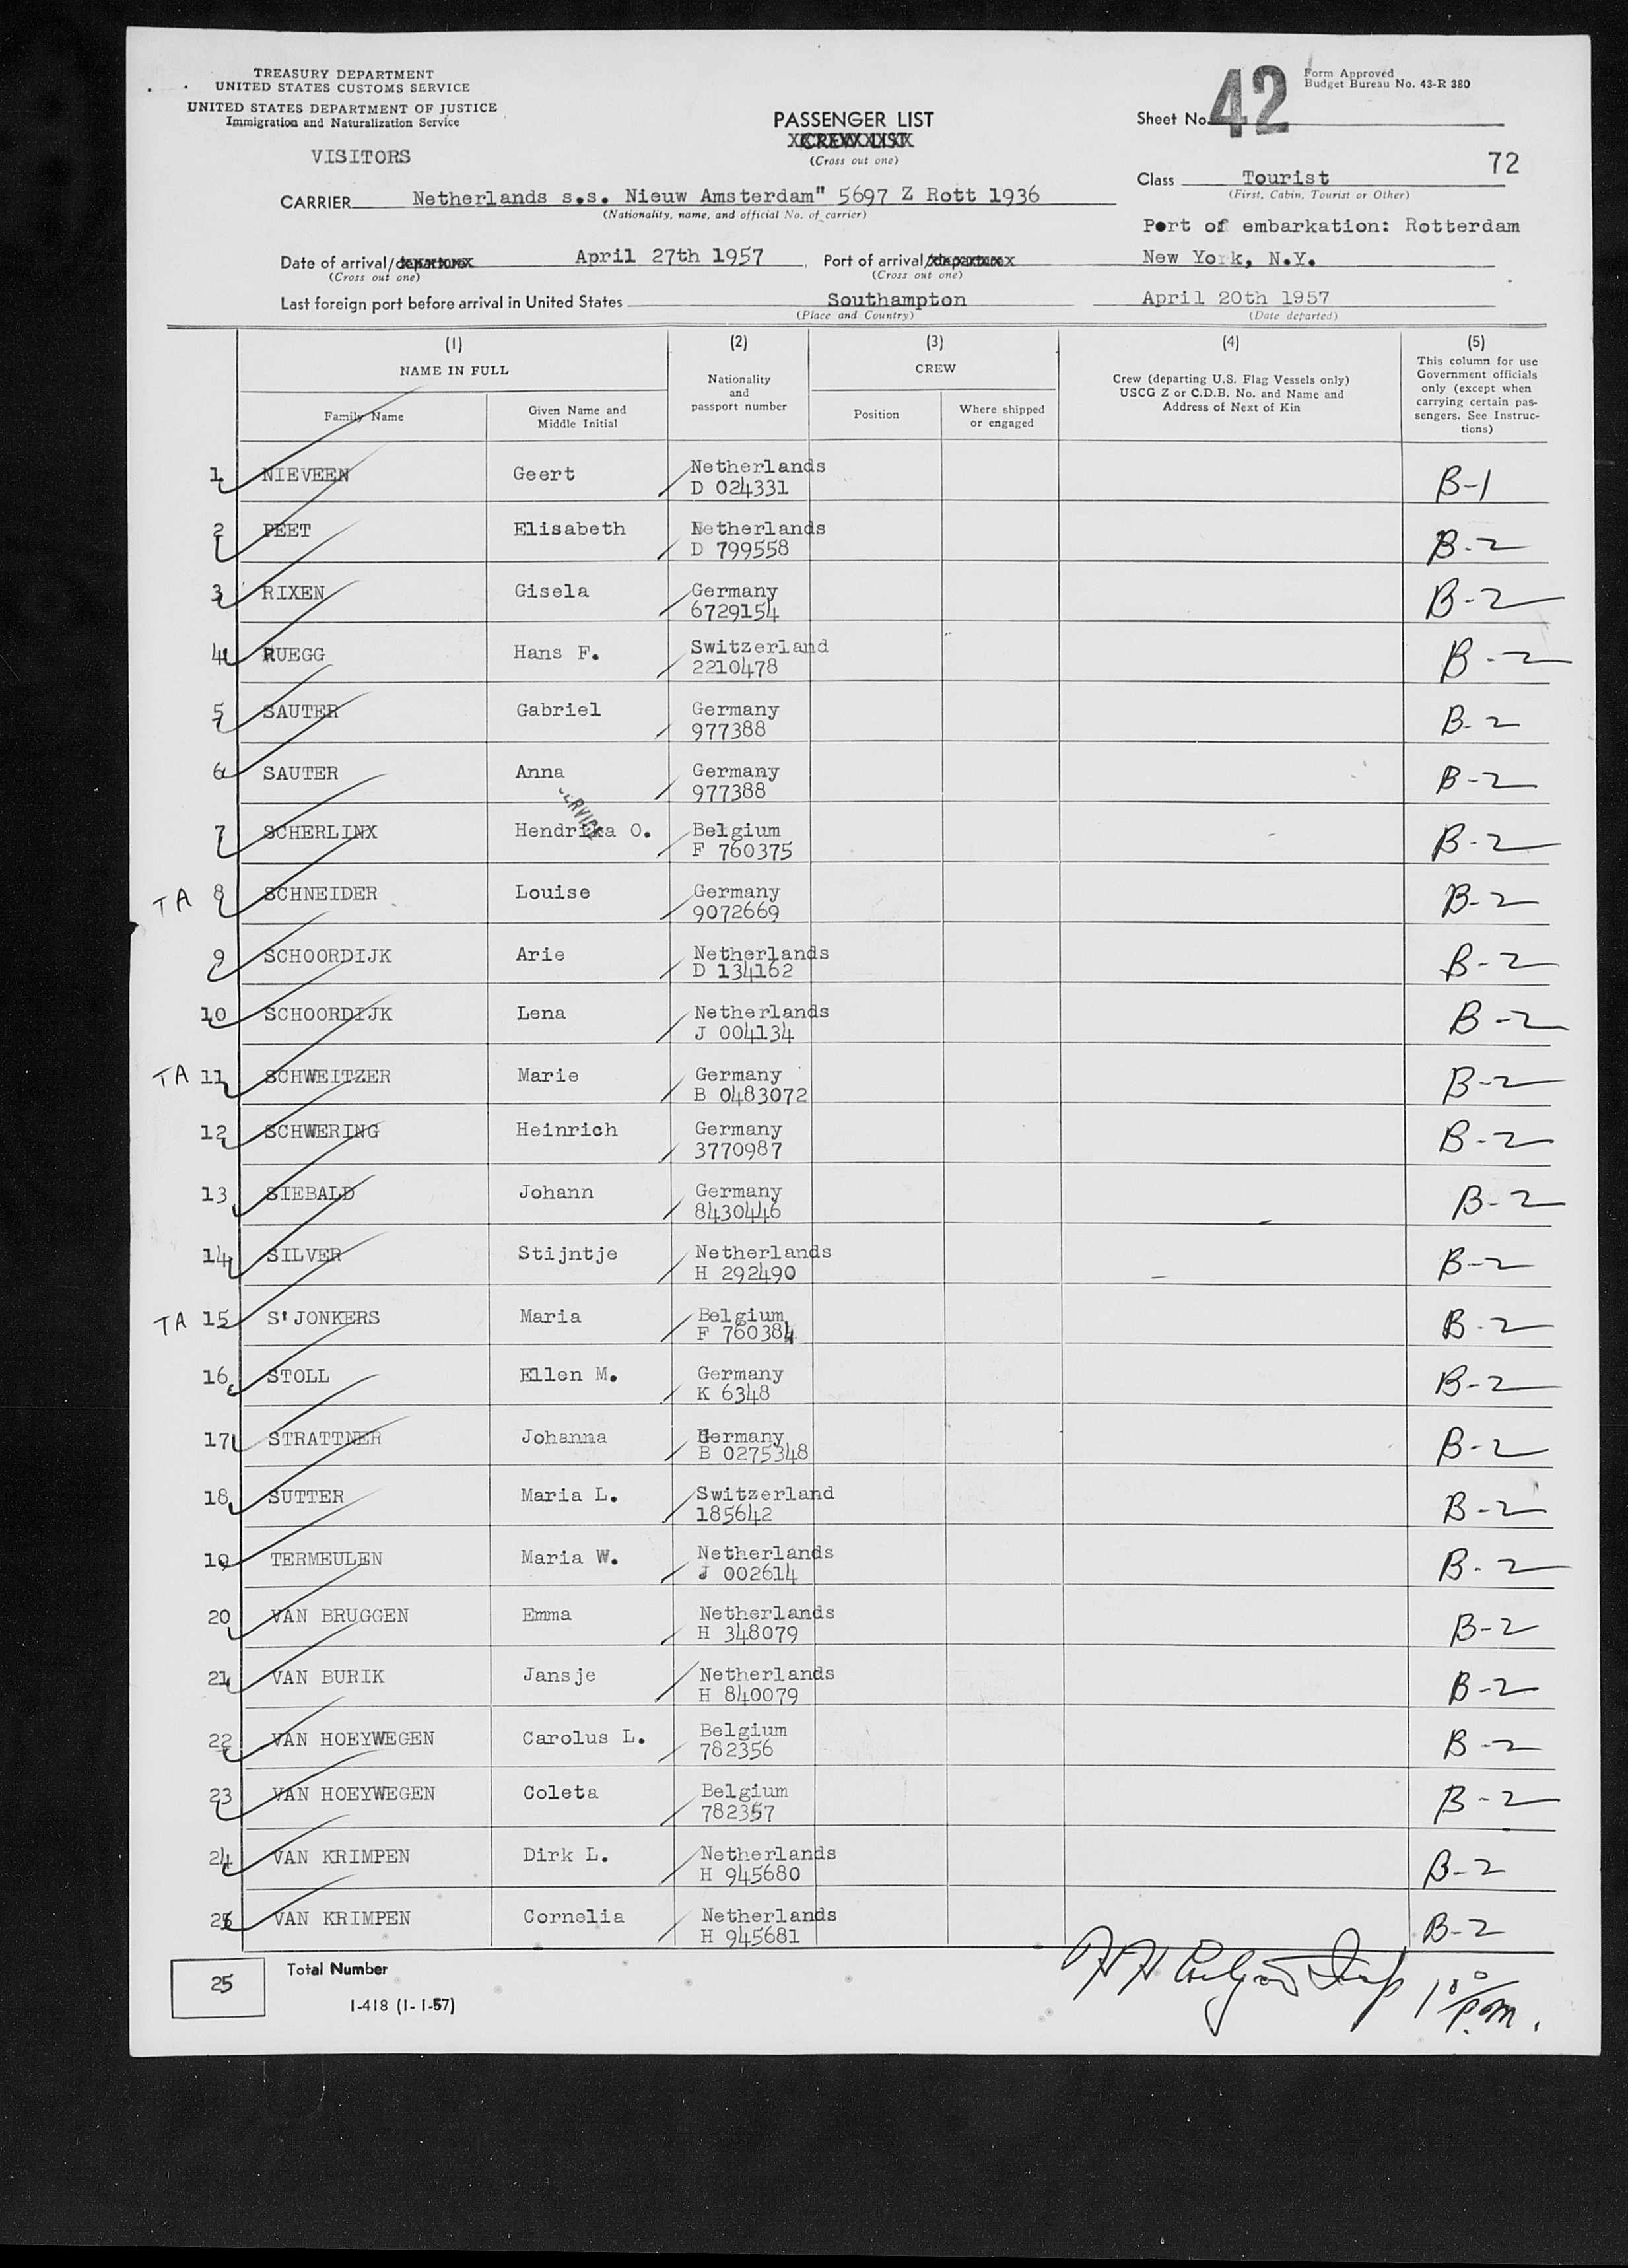 TREASURY DEPARTMENT
UNITED STATES CUSTOMS SERVICE
UNITED STATES DEPARTMENT OF JUSTICE
Immigration and Naturalization Service
VISITORS
PASSENGER LIST
CREW LIST
(Cross out one)
Form Approved
Budget Bureau No. 43-R 380
Sheet No. 42
72
Class Tourist
(First, Cabin, Tourist or Other)
CARRIER Netherlands s.s. Nieuw Amsterdam" 5697 Z Rott 1936
(Nationality, name, and official No. of carrier)
Port of embarkation: Rotterdam
Date of arrival/departure April 27th 1957 Port of arrival/departure New York, N.Y.
(Cross out one) (Cross out one)
Last foreign port before arrival in United States Southampton April 20th 1957
(Place and Country) (Date departed)
(1) (2) (3) (4) (5)
NAME IN FULL
Family Name
Given Name and
Middle Initial
Nationality
and
passport number
CREW
Position
Where shipped
or engaged
Crew (departing U.S. Flag Vessels only)
USCG Z or C.D.B. No. and Name and
Address of Next of Kin
This column for use
Government officials
only (except when
carrying certain pas-
sengers. See Instruc-
tions)
1 NIEVEEN Geert Netherlands B-1
D 024331
2 PEET Elisabeth Netherlands B-2
D 799558
3 RIXEN Gisela Germany B-2
6729154
4 RUEGG Hans F. Switzerland B-2
2210478
5 SAUTER Gabriel Germany B-2
977388
6 SAUTER Anna Germany B-2
977388
ERVICE
7 SCHERLINX Hendrika O. Belgium B-2
F 760375
TA 8 SCHNEIDER Louise Germany B-2
9072669
9 SCHOORDIJK Arie Netherlands B-2
D 134162
10 SCHOORDIJK Lena Netherlands B-2
J 004134
TA 11 SCHWEITZER Marie Germany B-2
B 0483072
12 SCHWERING Heinrich Germany B-2
3770987
13 SIEBALD Johann Germany B-2
8430446
14 SILVER Stijntje Netherlands B-2
H 292490
TA 15 S'JONKERS Maria Belgium B-2
F 760384
16 STOLL Ellen M. Germany B-2
K 6348
17 STRATTNER Johanna Germany B-2
B 0275348
18 SUTTER Maria L. Switzerland B-2
185642
19 TERMEULEN Maria W. Netherlands B-2
J 002614
20 VAN BRUGGEN Emma Netherlands B-2
H 348079
21 VAN BURIK Jansje Netherlands B-2
H 840079
22 VAN HOEYWEGEN Carolus L. Belgium B-2
782356
23 VAN HOEYWEGEN Coleta Belgium B-2
782357
24 VAN KRIMPEN Dirk L. Netherlands B-2
H 945680
25 VAN KRIMPEN Cornelia Netherlands B-2
H 945681
25 Total Number
I-418 (1-1-57)
1 00/P.M.